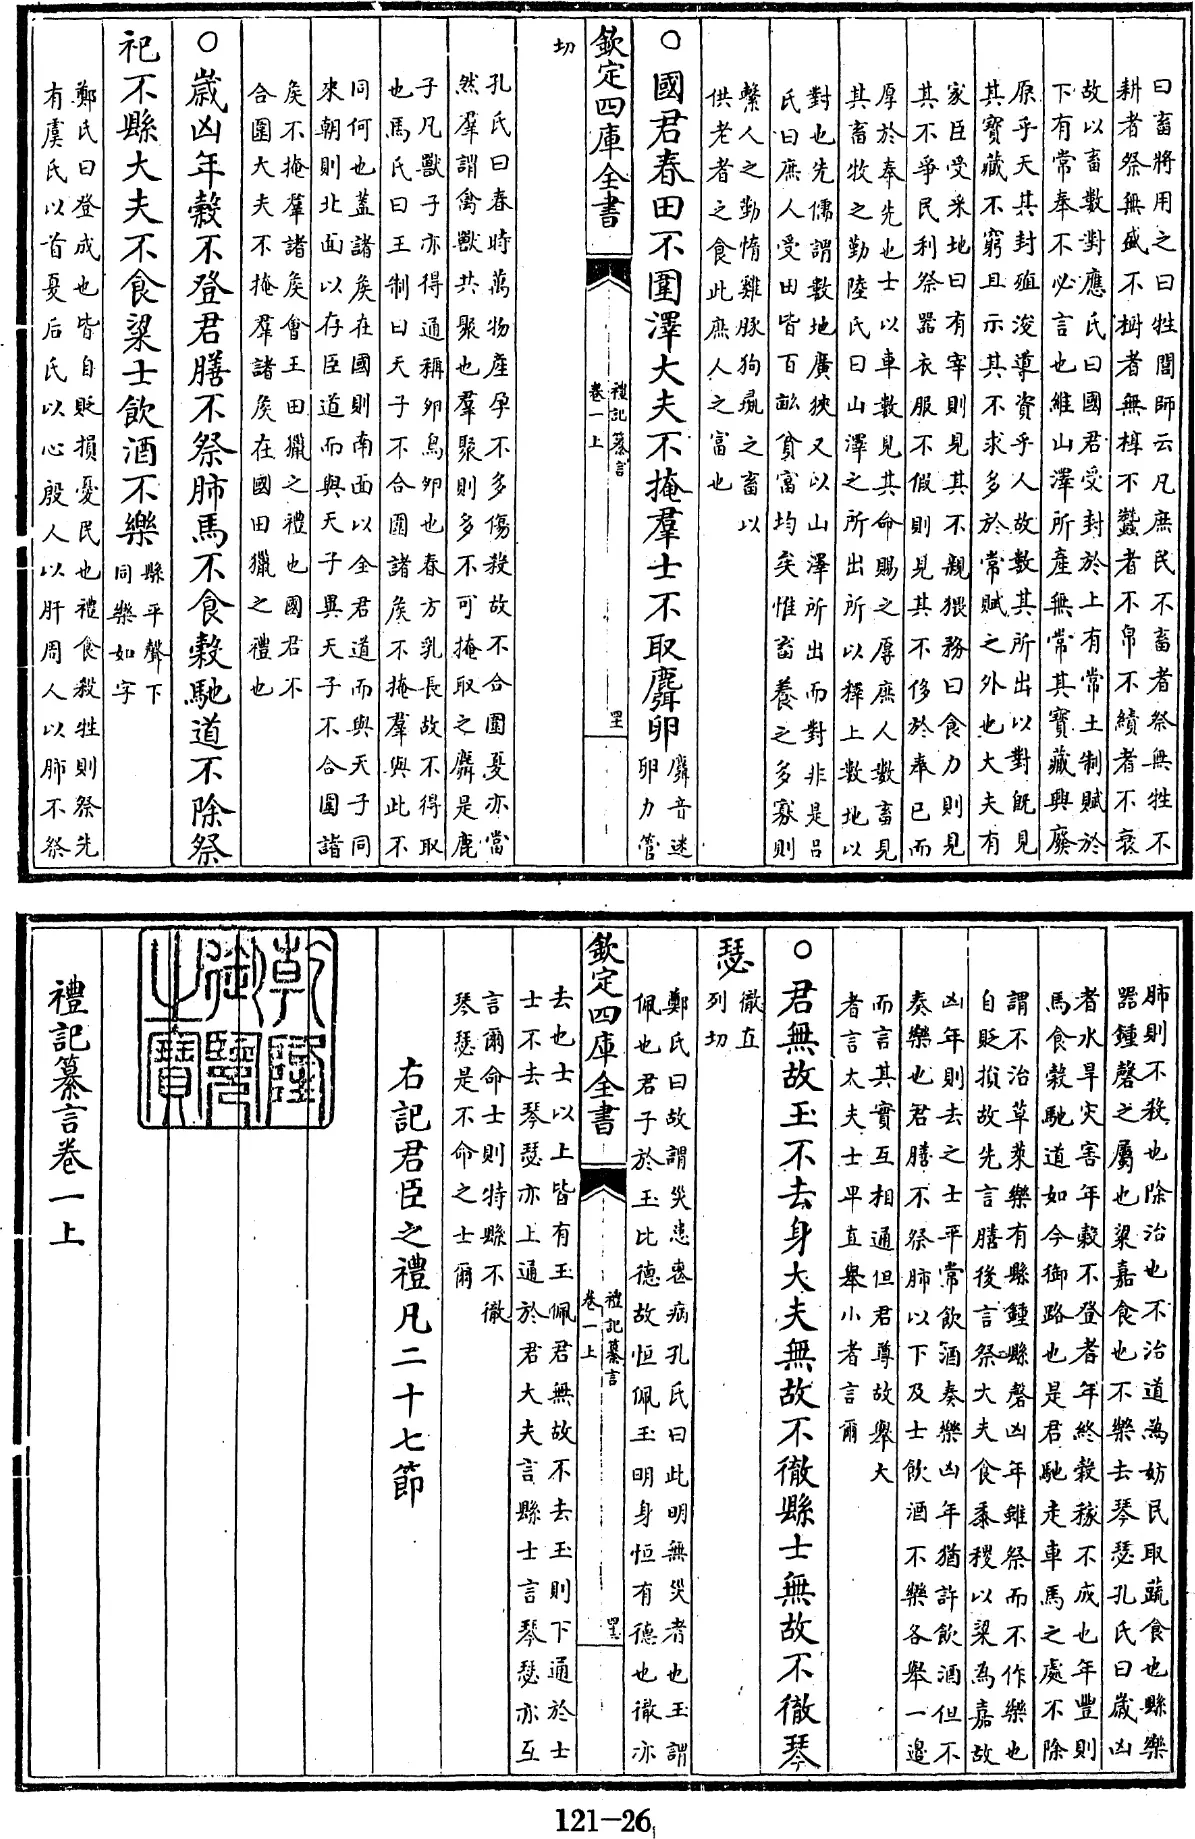 曰畜將用之曰牲閭師云凡庶民不畜者祭無牲不
耕者祭無盛不樹者無椁不蠶者不帛不績者不衰
故以畜數對應氏曰國君受封於上有常土制賦於
下有常奉不必言也維山澤所產無常其寶藏興廢
原乎天其封殖浚導資乎人故數其所出以對旣見
其寶藏不窮且示其不求多於常賦之外也大夫有
家臣受采地曰有宰則見其不親猥務曰食力則見
其不爭民利祭器衣服不假則見其不侈於奉已而
厚於奉先也士以車數見其命賜之厚庶人數畜見
其畜牧之勤陸氏曰山澤之所出所以釋上數地以
對也先儒謂數地廣狹又以山澤所出而對非是吕
氏曰庶人受田皆百畝貧富均矣惟畜養之多寡則
繫人之勤惰雞豚狗彘之畜以
供老者之食此庶人之富也
○國君春田不圍澤大夫不掩羣士不取麛卵
麛音迷
卵力管
欽定四庫全書
禮記纂言
卷一上
切
孔氏曰春時萬物產孕不多傷殺故不合圍夏亦當
然羣謂禽獸共聚也羣聚則多不可掩取之麛是鹿
子凡獸子亦得通稱卵鳥卵也春方乳長故不得取
也馬氏曰王制曰天子不合圍諸矦不掩羣與此不
同何也蓋諸矦在國則南面以全君道而與天子同
來朝則北面以存臣道而與天子異天子不合圍諸
矦不掩羣諸矦會王田獵之禮也國君不
合圍大夫不掩羣諸矦在國田獵之禮也
○歲凶年穀不登君膳不祭肺馬不食穀馳道不除祭
祀不縣大夫不食粱士飲酒不樂
縣平聲下
同樂如字
鄭氏曰登成也皆自貶損憂民也禮食殺牲則祭先
有虞氏以首夏后氏以心殷人以肝周人以肺不祭
肺則不殺也除治也不治道為妨民取蔬食也縣樂
器鍾磬之屬也粱嘉食也不樂去琴瑟孔氏曰歲凶
者水旱災害年穀不登者年終穀稼不成也年豐則
馬食穀馳道如今御路也是君馳走車馬之處不除
謂不治草萊樂有縣鍾縣磬凶年雖祭而不作樂也
自貶損故先言膳後言祭大夫食黍稷以粱為嘉故
凶年則去之士平常飲酒奏樂凶年猶許飲酒但不
奏樂也君膳不祭肺以下及士飲酒不樂各舉一邊
而言其實互相通但君尊故舉大
者言大夫士卑直舉小者言爾
○君無故玉不去身大夫無故不徹縣士無故不徹琴
瑟
徹直
列切
鄭氏曰故謂災患喪病孔氏曰此明無災者也玉謂
佩也君子於玉比德故恒佩玉明身恒有德也徹亦
欽定四庫全書
禮記纂言
卷一上
去也士以上皆有玉佩君無故不去玉則下通於士
士不去琴瑟亦上通於君大夫言縣士言琴瑟亦互
言爾命士則特縣不徹
琴瑟是不命之士爾
右記君臣之禮凡二十七節
乾隆
御覽
之寶
禮記纂言卷一上
121-26